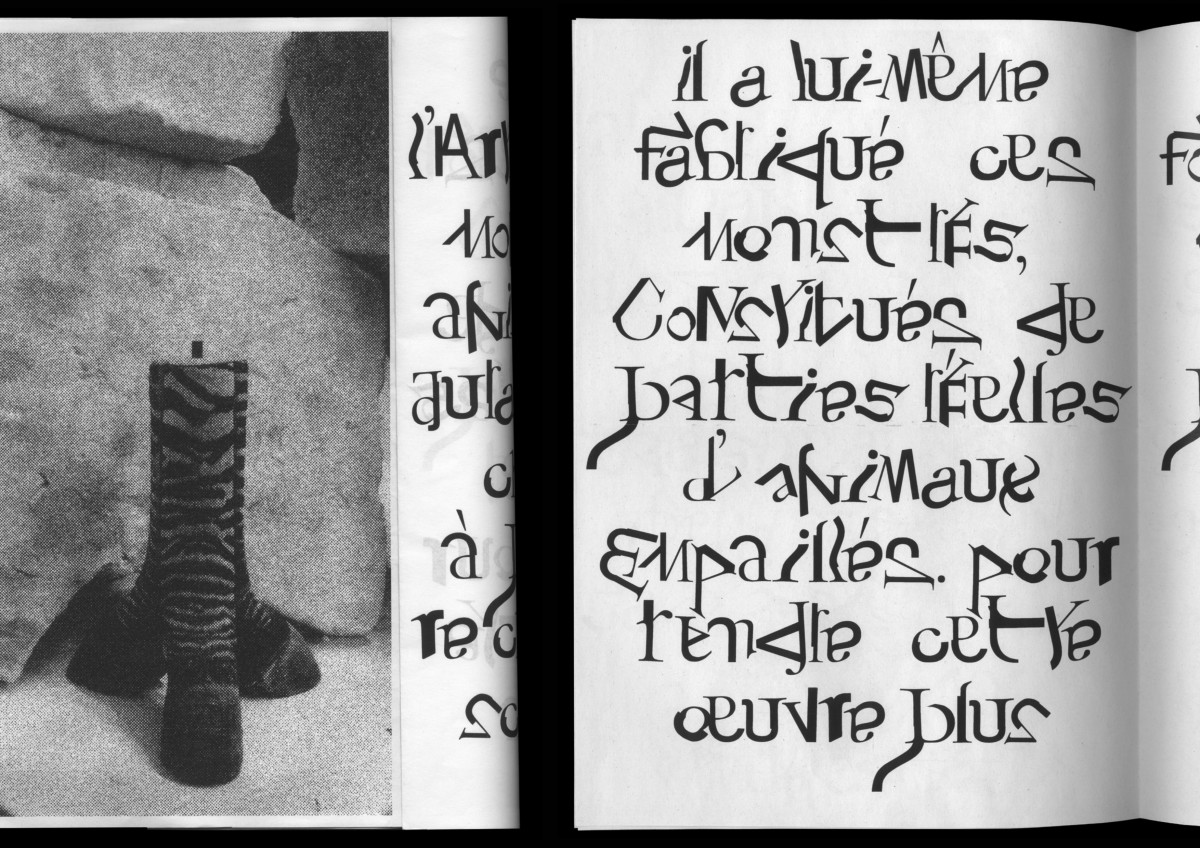 l'Ar
mo
ani
dura
à
re c
il a lui-même
fabriqué ces
monstres,
constitués de
parties réelles
d'animaux
empaillés. pour
rendre cette
œuvre plus